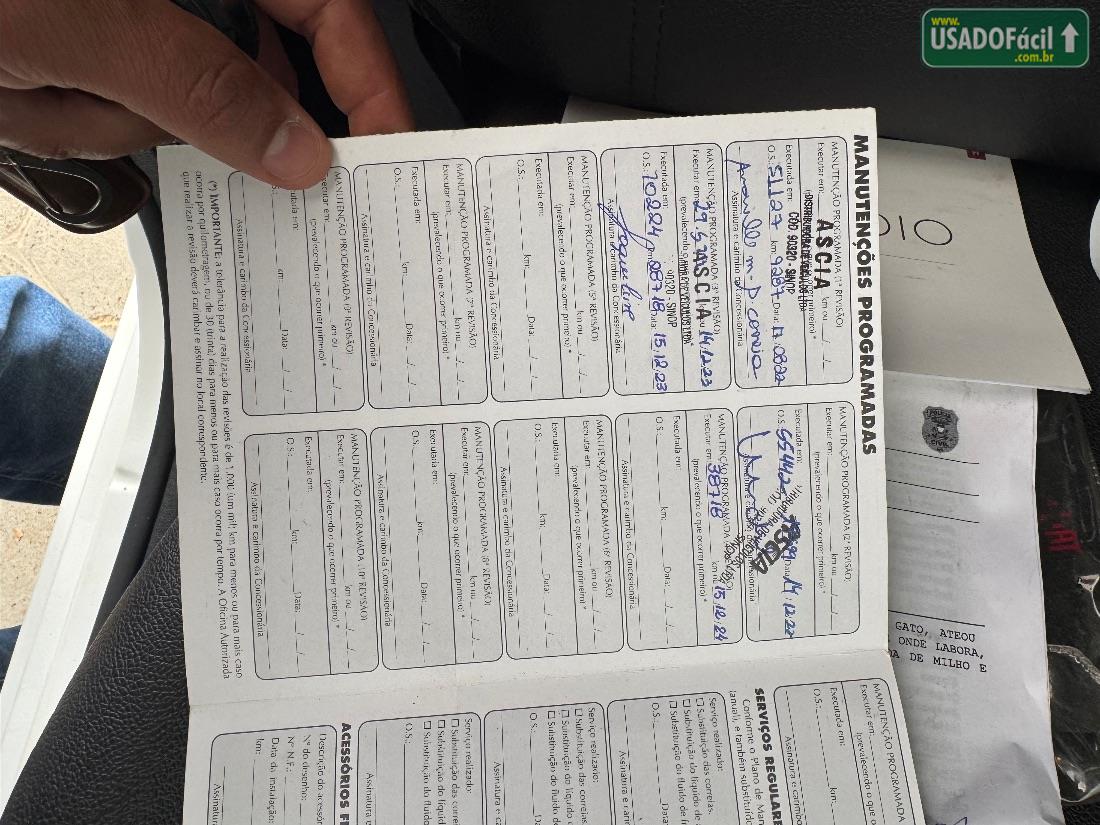 www.
USADOFácil
.com.br
MANUTENÇÕES PROGRAMADAS
MANUTENÇÃO PROGRAMADA (1ª REVISÃO)
Executar em: km ou
(prevalecendo o que ocorrer primeiro) *
ASCIA
DISTRIBUIDORA DE VEÍCULOS LTDA
COD 90320 - SINOP
Executada em:
O.S.: 51127 km: 9287 Data: 17.08.22
Assinatura e carimbo da Concessionária
MANUTENÇÃO PROGRAMADA (3ª REVISÃO)
Executar em: km ou 14.12.23
(prevalecendo o que ocorrer primeiro) *
ASCIA
90320 - SINOP
Executada em:
O.S.: 70224 km: 28718 Data: 15.12.23
Jaqueline
Assinatura e carimbo da Concessionária
MANUTENÇÃO PROGRAMADA (5ª REVISÃO)
Executar em: km ou
(prevalecendo o que ocorrer primeiro) *
Executada em:
O.S.: km: Data:
Assinatura e carimbo da Concessionária
MANUTENÇÃO PROGRAMADA (7ª REVISÃO)
Executar em: km ou
(prevalecendo o que ocorrer primeiro) *
Executada em:
O.S.: km: Data:
Assinatura e carimbo da Concessionária
MANUTENÇÃO PROGRAMADA (9ª REVISÃO)
Executar em: km ou
(prevalecendo o que ocorrer primeiro) *
km: Data:
Assinatura e carimbo da Concessionária
MANUTENÇÃO PROGRAMADA (2ª REVISÃO)
Executar em: km ou
(prevalecendo o que ocorrer primeiro) *
Executada em:
O.S.: 55442 Data: 14.12.22
MANUTENÇÃO PROGRAMADA
Executar em: 38718 km ou 15.12.24
(prevalecendo o que ocorrer primeiro) *
Executada em:
O.S.: km: Data:
Assinatura e carimbo da Concessionária
MANUTENÇÃO PROGRAMADA (6ª REVISÃO)
Executar em: km ou
(prevalecendo o que ocorrer primeiro) *
Executada em:
O.S.: km: Data:
Assinatura e carimbo da Concessionária
MANUTENÇÃO PROGRAMADA (8ª REVISÃO)
Executar em: km ou
(prevalecendo o que ocorrer primeiro) *
Executada em:
O.S.: km: Data:
Assinatura e carimbo da Concessionária
MANUTENÇÃO PROGRAMADA (10ª REVISÃO)
Executar em: km ou
(prevalecendo o que ocorrer primeiro) *
Executada em:
O.S.: km: Data:
Assinatura e carimbo da Concessionária
(*) IMPORTANTE: a tolerância para a realização das revisões é de 1.000 (um mil) km para menos ou para mais caso
ocorra por quilometragem, ou de 30 (trinta) dias para menos ou para mais caso ocorra por tempo. A Oficina Autorizada
que realizar a revisão deverá carimbar e assinar no local correspondente.
MANUTENÇÃO PROGRAMADA
Executar em:
(prevalecendo o que o
Executada em:
O.S.:
Assinatura e carimbo
SERVIÇOS REGULARE
Conforme o Plano de Man
(anual), e também substituído
Serviço realizado:
Substituição das correias.
Substituição do líquido de a
Substituição do fluido de fr
O.S.: Data
Assinatura e car
Serviço realizado:
Substituição das correias
Substituição do líquido d
Substituição do fluido de
O.S.:
Assinatura e c
Serviço realizado:
Substituição das corre
Substituição do líquid
Substituição do fluido
O.S.:
Assinatura
ACESSÓRIOS F
Descrição do acessór
Nº do desenho:
Nº N.F.:
Data da instalação:
km:
Assinatura
POLÍCIA
CIVIL
GATO, ATEOU
ONDE LABORA,
DA DE MILHO E